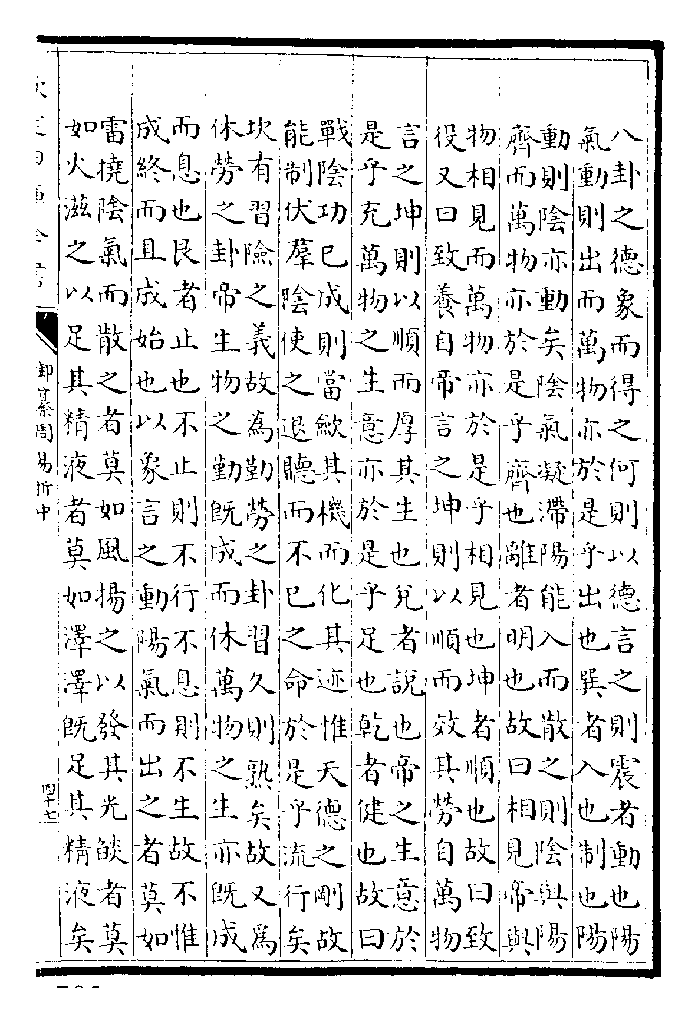 八卦之德象而得之何則以德言之則震者動也陽
氣動則出而萬物亦於是乎出也巽者入也制也陽
動則陰亦動矣陰氣凝滯陽能入而散之則陰與陽
齊而萬物亦於是乎齊也離者明也故曰相見帝與
物相見而萬物亦於是乎相見也坤者順也故曰致
役又曰致養自帝言之坤則以順而效其勞自萬物
言之坤則以順而厚其生也兌者說也帝之生意於
是乎充萬物之生意亦於是乎足也乾者健也故曰
戰陰功已成則當歛其機而化其迹惟天德之剛故
能制伏羣陰使之退聽而不已之命於是乎流行矣
坎有習險之義故為勤勞之卦習久則熟矣故又為
休勞之卦帝生物之勤既成而休萬物之生亦既成
而息也艮者止也不止則不行不息則不生故不惟
成終而且成始也以象言之動陽氣而出之者莫如
雷撓陰氣而散之者莫如風揚之以發其光燄者莫
如火滋之以足其精液者莫如澤澤既足其精液矣
御纂周易折中
四十七